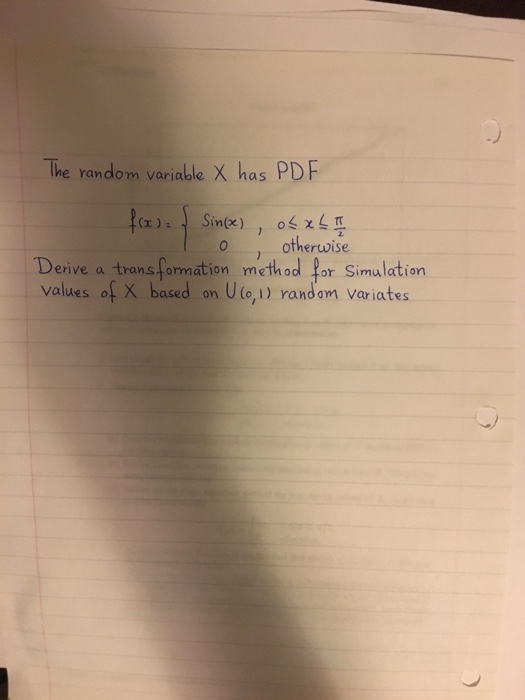 The random variable X has PDF
f(x) = { Sin(x) , 0 ≤ x ≤ π/2
0 , otherwise
Derive a transformation method for Simulation
values of X based on U(0,1) random variates